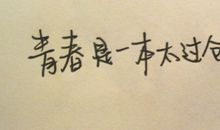 青春是一本太过仓